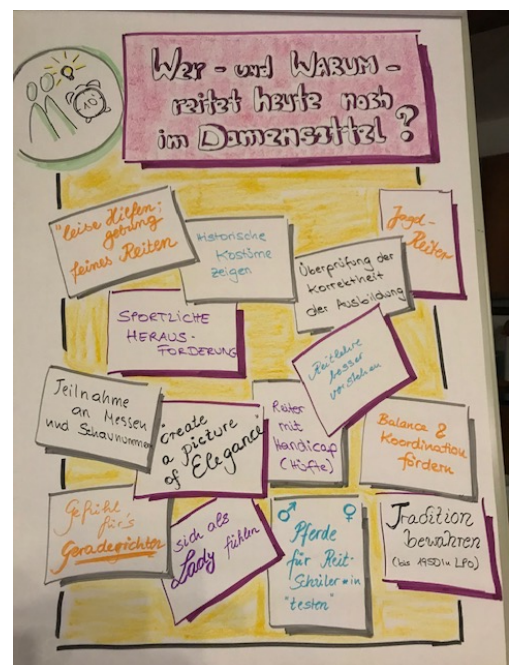 Wer - und WARUM -
reitet heute noch
im Damensattel?
10'
"leise Hilfen-
gebung
feines Reiten
Historische
Kostüme
zeigen
Überprüfung der
Korrektheit
der Ausbildung
Jagd-
Reiter
SPORTLICHE
HERAUS-
FORDERUNG
Reitlehre
besser
verstehen
Teilnahme
an Messen
und Schaunummern
"Create
a picture
of Elegance"
Reiter
mit
Handicap
(Hüfte)
Balance &
Koordination
fördern
Gefühl
für's
Geraderichten
sich als
Lady fühlen
♂ ♀
Pferde
für Reit-
Schüler*in
"testen"
Tradition
bewahren
(bis 1950 in LPO)